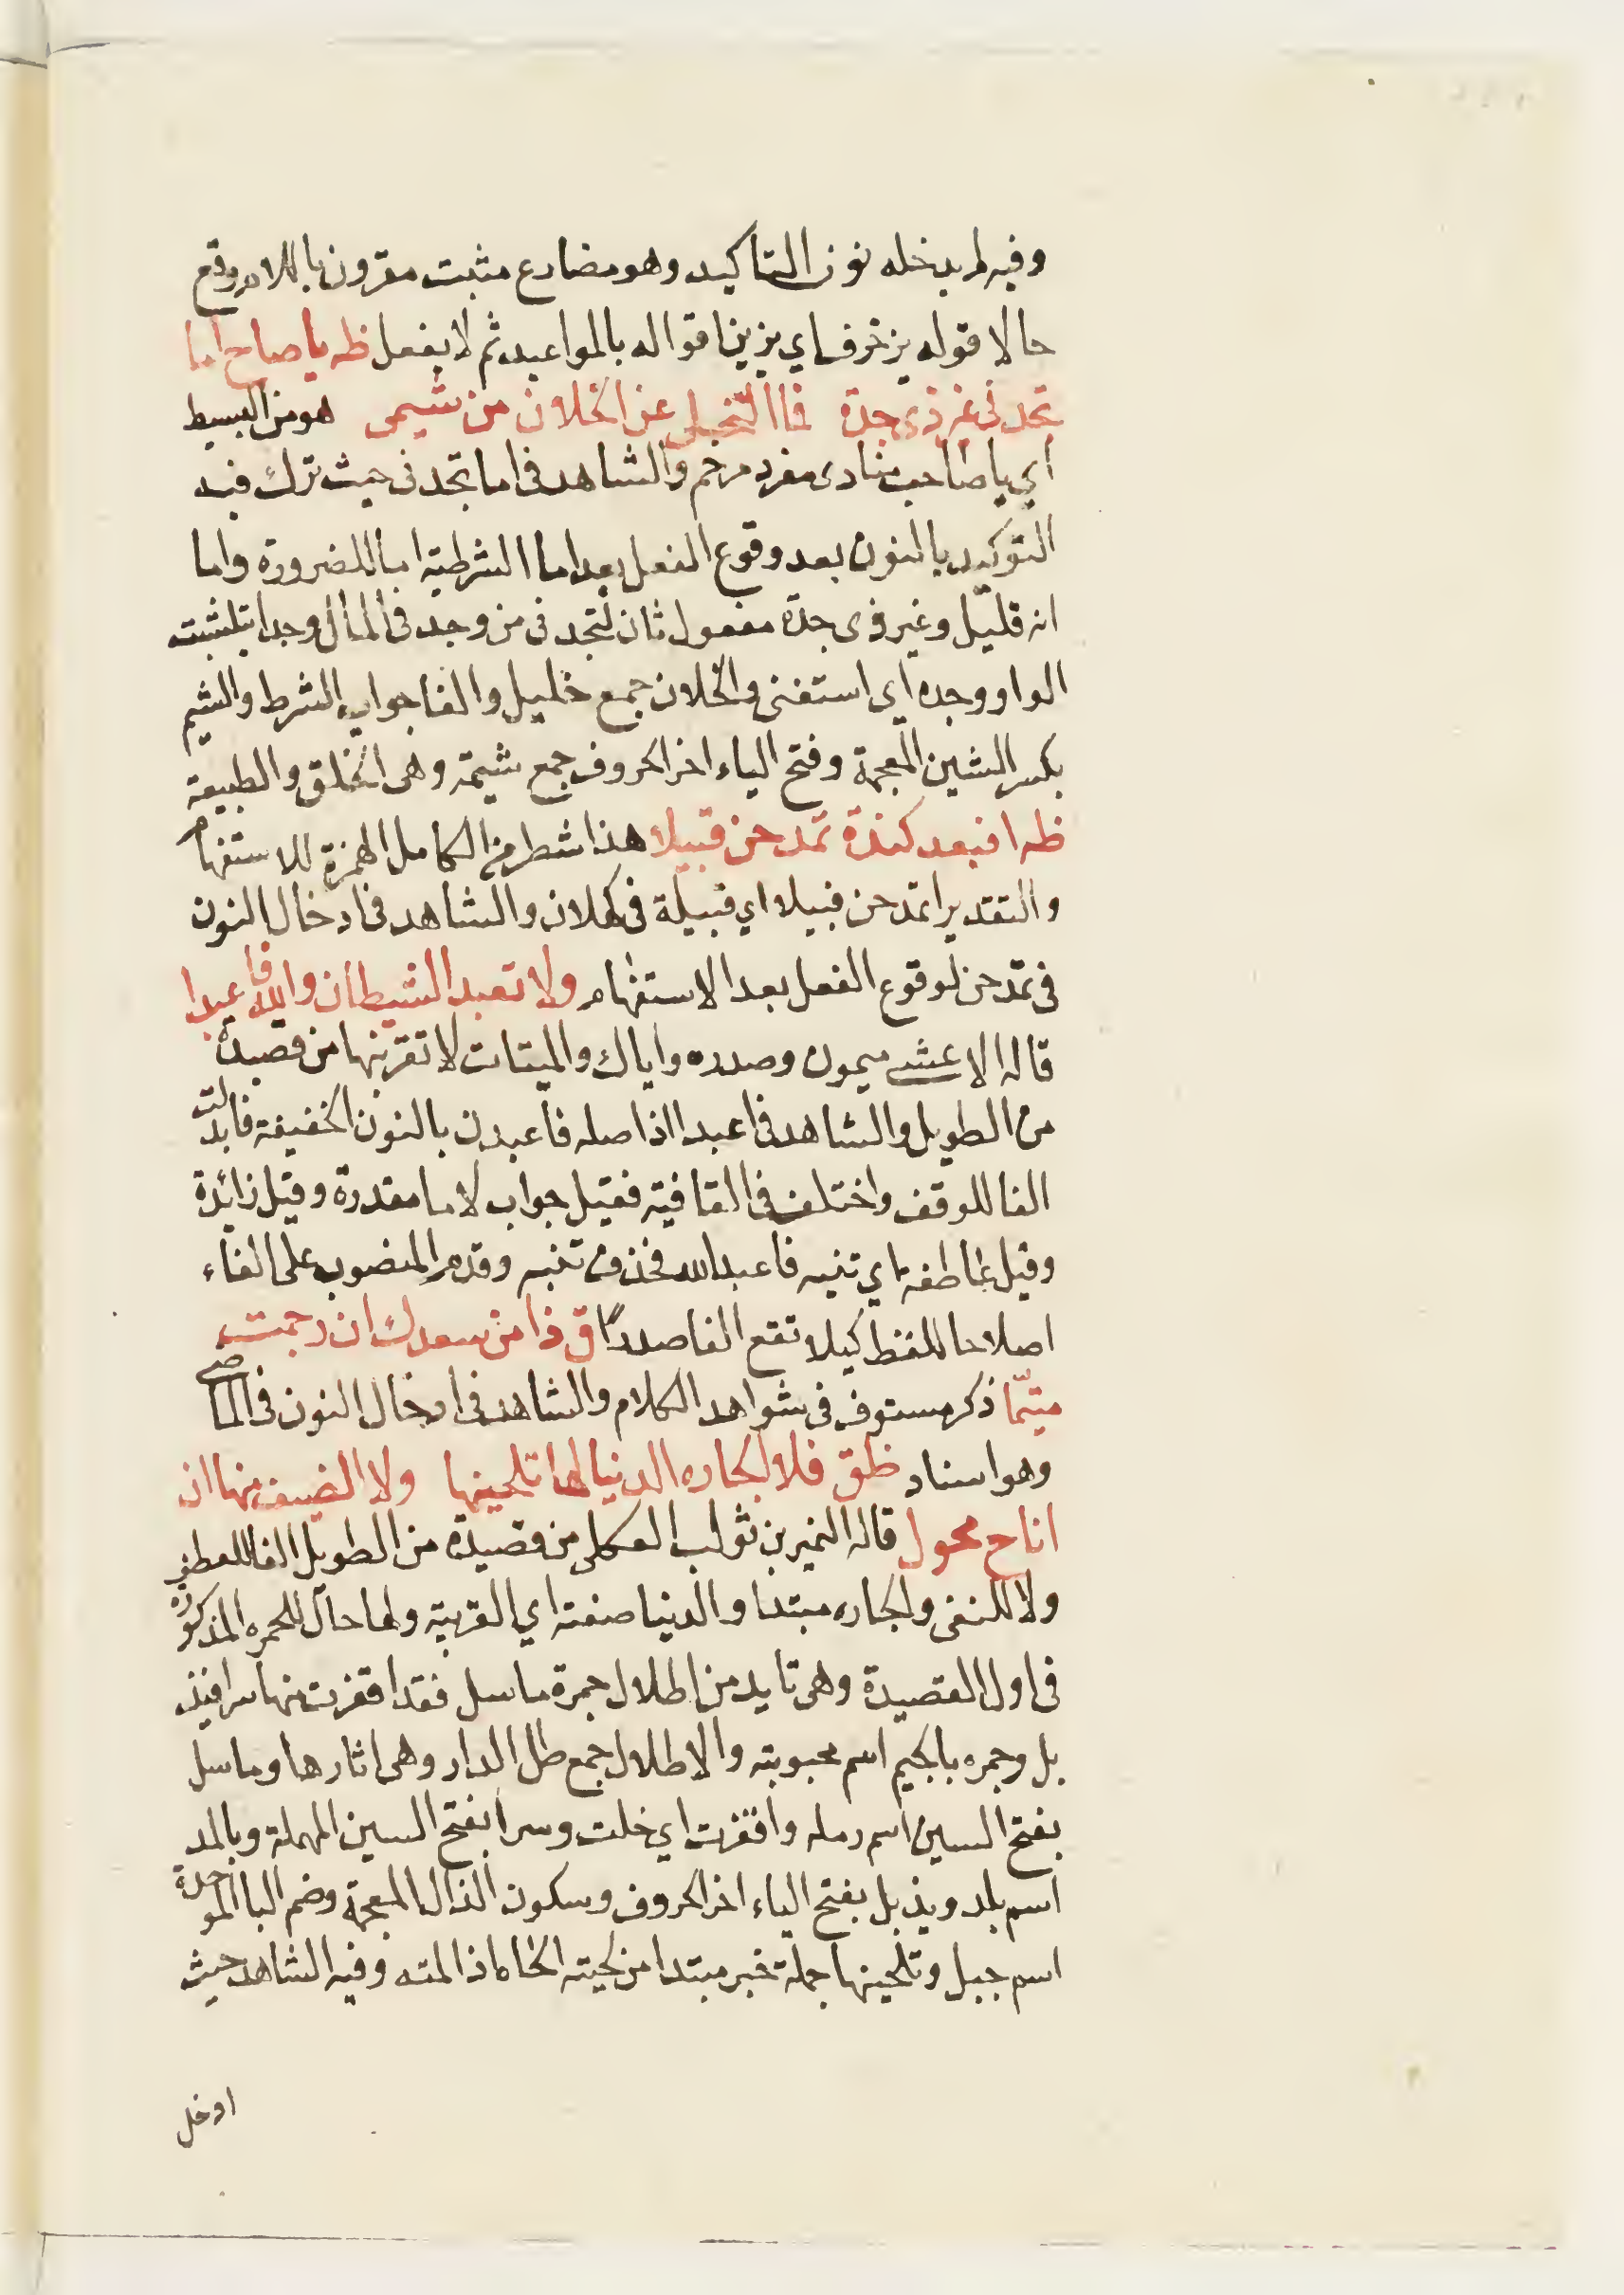 وفيه لم يدخله نون التاكيد وهو مضارع مثبت مقرون باللام وقع
حالا قوله يزخرف اي يزين اقواله بالمواعيد ثم لا يفعل ظه يا صاح اما
تجدني غير ذي جدة فما التخلي عن الخلان من شيمى هو من البسيط
اي يا صاحب منادى مفرد مرخم والشاهد في اما تجدنى حيث ترك فيه
التوكيد بالنون بعد وقوع الفعل بعد اما الشرطية اما للضرورة واما
انه قليل وغير ذى جدة مفعول ثان لتجدنى من وجد في المال وجدا بتثليث
الواو وجده اى استغنى والخلان جمع خليل والفا جواب الشرط والشيم
بكسر الشين المعجمة وفتح الياء اخر الحروف جمع شيمة وهى الخلق والطبيعة
ظه افبعد كندة تمدحن قبيلا هذا شطر من الكامل الهمزة للاستفهام
والتقدير اتمدحن قبيلا اي قبيلة في كهلان والشاهد في ادخال النون
في تمدحن لوقوع الفعل بعد الاستفهام ولا تعبد الشيطان والله فاعبدا
قاله الاعشى ميمون وصدره واياك والميتات لا تقربنها من قصيدة
من الطويل والشاهد في اعبدا اذ اصله فاعبدن بالنون الخفيفة فابدلت
الفا للوقف واختلف في القافية فقيل جواب لاما مقدرة وقيل زائدة
وقيل عاطفة اي تنبه فاعبد الله فحذف تنبه وقدم المنصوب على الفاء
اصلاحا للفظ كيلا تقع الفا صدرا ق ذا من سعدك ان رحمت
متيّما ذكر مستوفى في شواهد الكلام والشاهد في ادخال النون في الماضى
وهو اسناد ظق فلا الجاره الدنيا لها تلحينها ولا الضيف منها ان
اناح محول قاله النمر بن تولب العكلى من قصيدة من الطويل الفا للعطف
ولا للنفى والجاره مبتدا والدنيا صفته اي القريبة ولها حال للجمره المذكورة
في اول القصيدة وهى تابد من اطلال جمرة ماسل فقد اقفرت منها سرا فيذ
بل وجمره بالجيم اسم محبوبته والاطلال جمع طلل الدار وهى اثارها وماسل
بفتح السين اسم رمله واقفرت اي خلت وسرا بفتح السين المهملة وبالمد
اسم بلد ويذبل بفتح الياء اخر الحروف وسكون الذال المعجمة وضم البا الموحدة
اسم جبل وتلحينها جملة خبر مبتدا من لحيته الحاه اذا لمته وفيه الشاهد حيث
ادخل